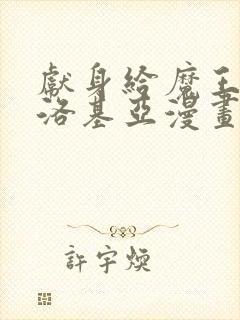 獻身給魔王
洛基亞漫畫
許宇煥